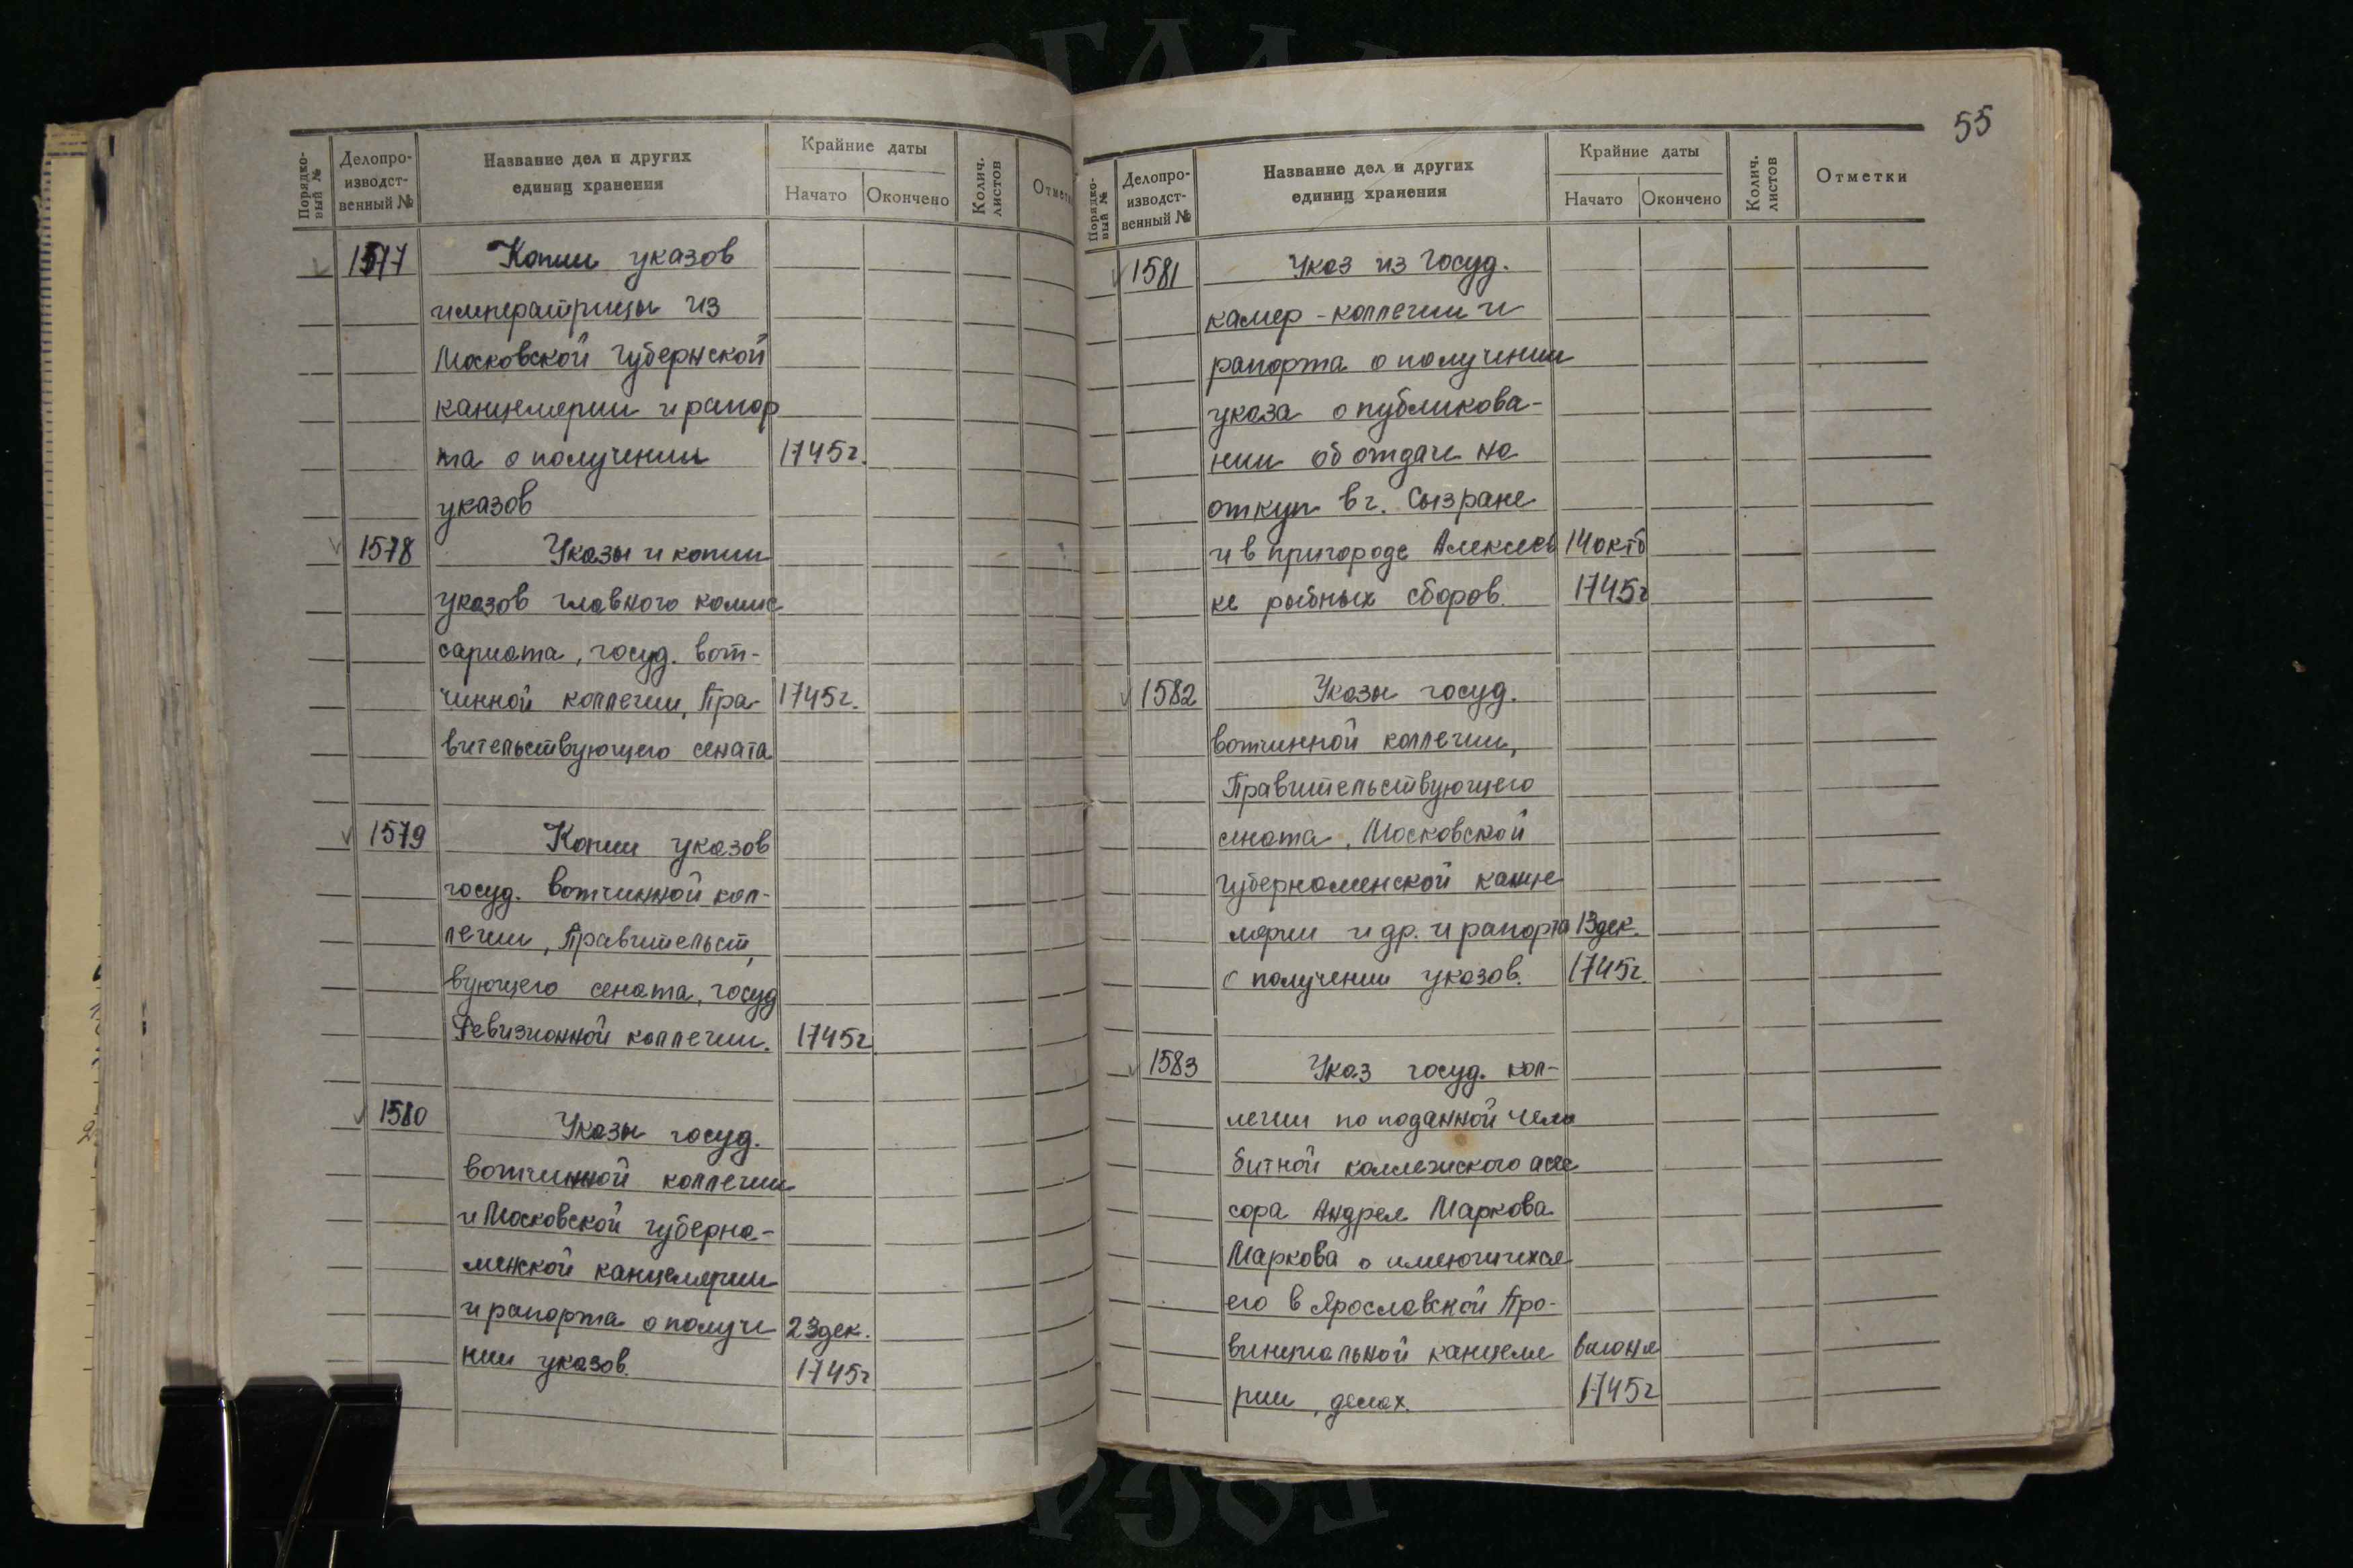 Порядко-
вый №
Делопро-
изводст-
венный №
Название дел и других
единиц хранения
Крайние даты
Начато
Окончено
Колич.
листов
Отмет
1577 Копии указов
императрицы из
Московской губернской
канцелярии и рапор
та о получении 1745г.
указов
1578 Указы и копии
указов главного комис
сариата, госуд. вот-
чинной коллегии, Пра- 1745г.
вительствующего сената
1579 Копии указов
госуд. вотчинной кол-
легии, Правительст,
вующего сената, госуд
Ревизионной коллегии. 1745г.
1580 Указы госуд.
вотчинной коллегии
и Московской губерна-
менской канцелярии
и рапорта о получе 23дек.
нии указов. 1745г
55
Порядко-
вый №
Делопро-
изводст-
венный №
Название дел и других
единиц хранения
Крайние даты
Начато
Окончено
Колич.
листов
Отметки
1581 Указ из госуд.
камер-коллегии и
рапорта о получении
указа о публикова-
нии об отдаче на
откуп в г. Сызране
и в пригороде Алексеев 14 октб
ке рыбных сборов. 1745г
1582 Указы госуд.
вотчинной коллегии,
Правительствующего
сената, Московской
губернаменской канце
лярии и др. и рапорта 13дек.
о получении указов. 1745г.
1583 Указ госуд. кол-
легии по поданной чело
битной коллежского асес
сора Андрея Маркова
Маркова о имеющихся
его в Ярославской Про-
винциальной канцеля июня
рии, делах. 1745г